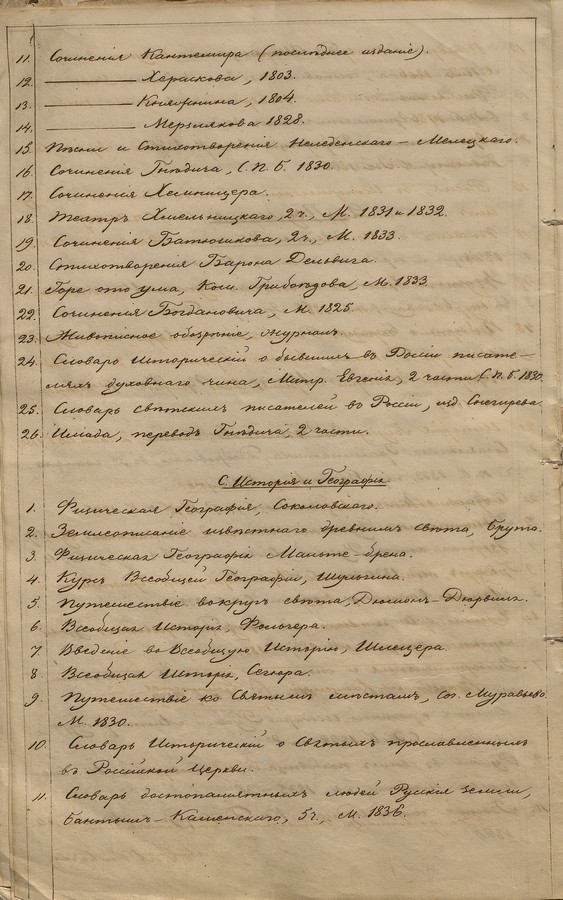 11. Сочиненія Кантемира (послѣднее изданіе).
12. ——— Хераскова, 1803.
13. ——— Княжнина, 1804.
14. ——— Мерзлякова 1828.
15. Пѣсни и Стихотворенія Нелединскаго-Мелецкаго.
16. Сочиненія Гнѣдича, С.П.Б. 1830.
17. Сочиненія Хемницера.
18. Театръ Хмельницкаго, 2 ч., М. 1831 и 1832.
19. Сочиненія Батюшкова, 2 ч., М. 1833.
20. Стихотворенія Барона Делвига.
21. Горе отъ ума, Ком. Грибоѣдова, М. 1833.
22. Сочиненія Богдановича, М. 1825.
23. Живописное обозрѣніе, журналъ.
24. Словарь Историческій о бывшихъ въ Россіи писате-
ляхъ духовнаго чина, Митр. Евгенія, 2 части С.П.Б. 1830.
25. Словарь свѣтскихъ писателей въ Россіи, изд. Снегирева.
26. Иліада, переводъ Гнѣдича, 2 части.
С. Исторія и Географія
1. Физическая Географія, Соколовскаго.
2. Землеописаніе извѣстнаго древнимъ свѣта, Брута.
3. Физическая Географія Мальте-Брена.
4. Курсъ Всеобщей Географіи, Шульгина.
5. Путешествіе вокругъ свѣта, Дюмонъ-Дюрвиля.
6. Всеобщая Исторія, Фольгера.
7. Введеніе во Всеобщую Исторію, Шлецера.
8. Всеобщая Исторія, Сегюра.
9. Путешествіе ко Святымъ мѣстамъ, Соч. Муравьева
М. 1830.
10. Словарь Историческій о Святыхъ прославленныхъ
въ Россійской Церкви.
11. Словарь достопамятныхъ людей Русскія земли,
Бантышъ-Каменскаго, 5 ч., М. 1836.